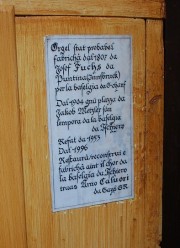 Orgel stat probabel
fabrichà dal 1807 da
Josef Fuchs da
Puntina (Innsbruck)
per la baselgia da S-chanf
Dal 1904 gnü plazzà da
Jakob Metzler sün
lempora da la baselgia
da
Refat da 1953
Dal 1996
Restaurà reconstrui e
fabrichà aint il chor da
la baselgia da
tras Arno Caluori
da